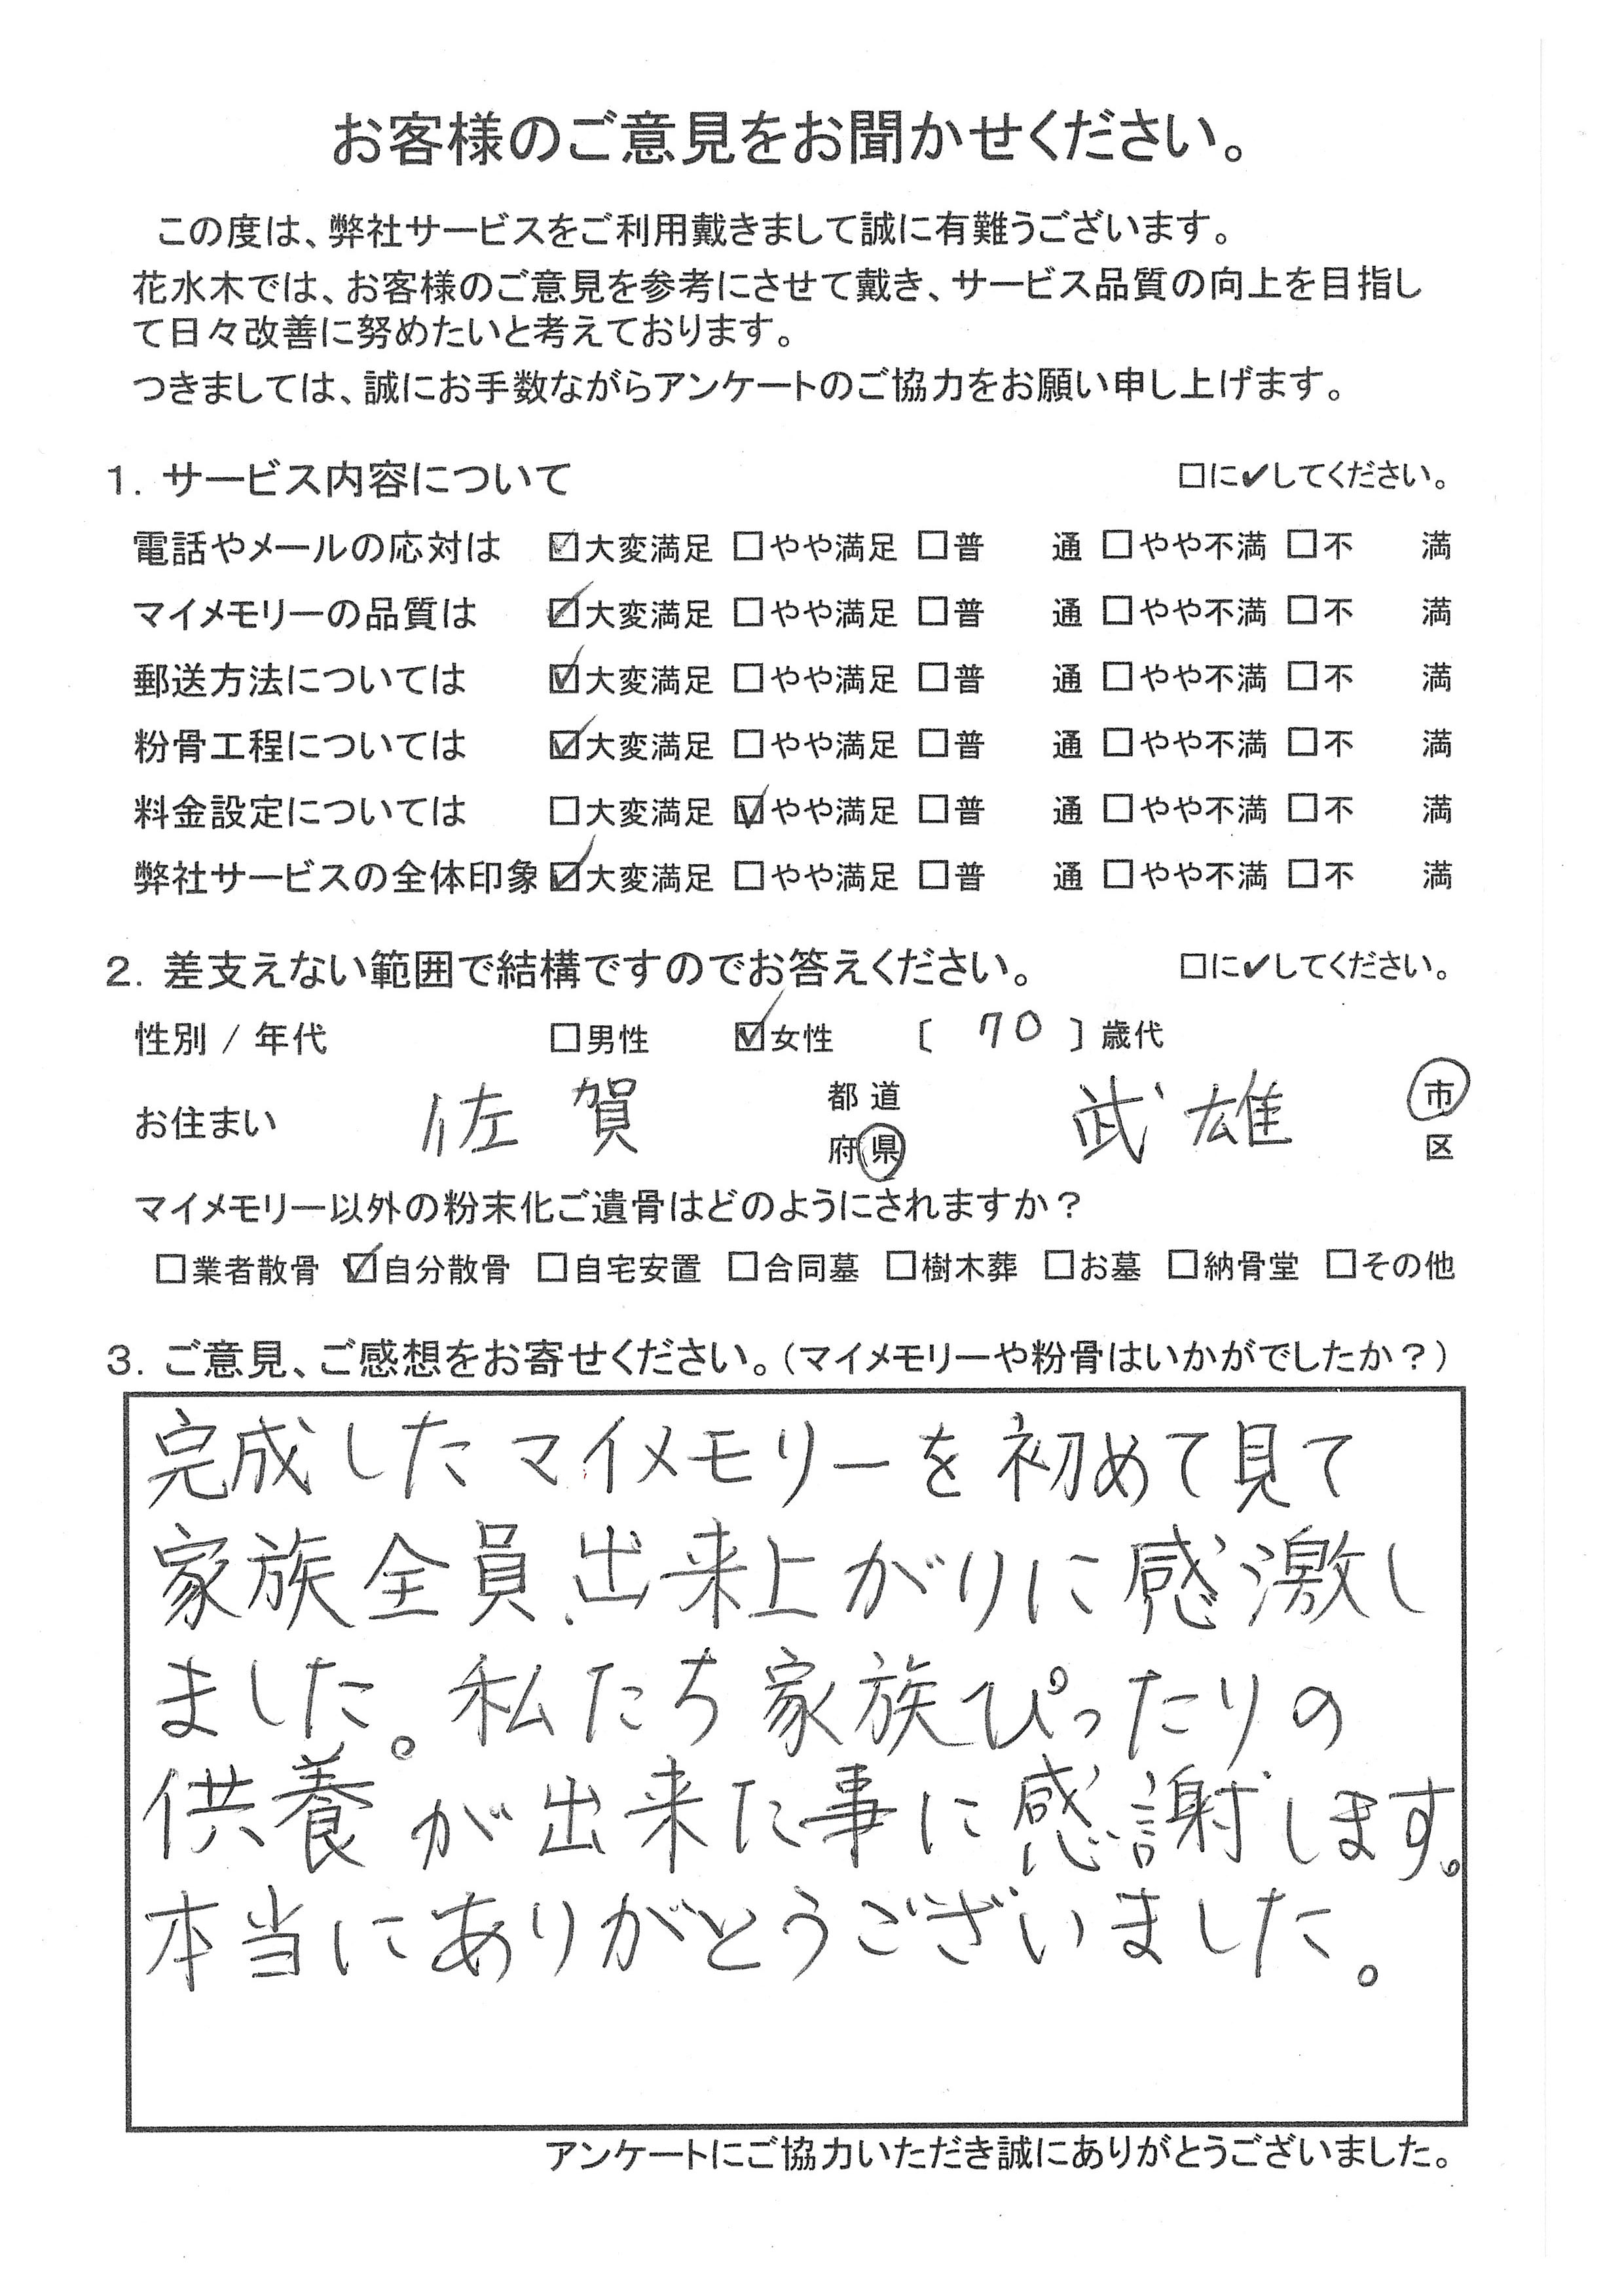 お客様のご意見をお聞かせください。
この度は、弊社サービスをご利用戴きまして誠に有難うございます。
花水木では、お客様のご意見を参考にさせて戴き、サービス品質の向上を目指し
て日々改善に努めたいと考えております。
つきましては、誠にお手数ながらアンケートのご協力をお願い申し上げます。
1. サービス内容について □に✔してください。
電話やメールの応対は ☑大変満足 □やや満足 □普 通 □やや不満 □不 満
マイメモリーの品質は ☑大変満足 □やや満足 □普 通 □やや不満 □不 満
郵送方法については ☑大変満足 □やや満足 □普 通 □やや不満 □不 満
粉骨工程については ☑大変満足 □やや満足 □普 通 □やや不満 □不 満
料金設定については □大変満足 ☑やや満足 □普 通 □やや不満 □不 満
弊社サービスの全体印象 ☑大変満足 □やや満足 □普 通 □やや不満 □不 満
2. 差支えない範囲で結構ですのでお答えください。 □に✔してください。
性別 / 年代 □男性 ☑女性 〔 70 〕歳代
お住まい 佐賀 都道府県 武雄 市区
マイメモリー以外の粉末化ご遺骨はどのようにされますか？
□業者散骨 ☑自分散骨 □自宅安置 □合同墓 □樹木葬 □お墓 □納骨堂 □その他
3. ご意見、ご感想をお寄せください。（マイメモリーや粉骨はいかがでしたか？）
完成したマイメモリーを初めて見て
家族全員、出来上がりに感激し
ました。私たち家族ぴったりの
供養が出来た事に感謝します。
本当にありがとうございました。
アンケートにご協力いただき誠にありがとうございました。